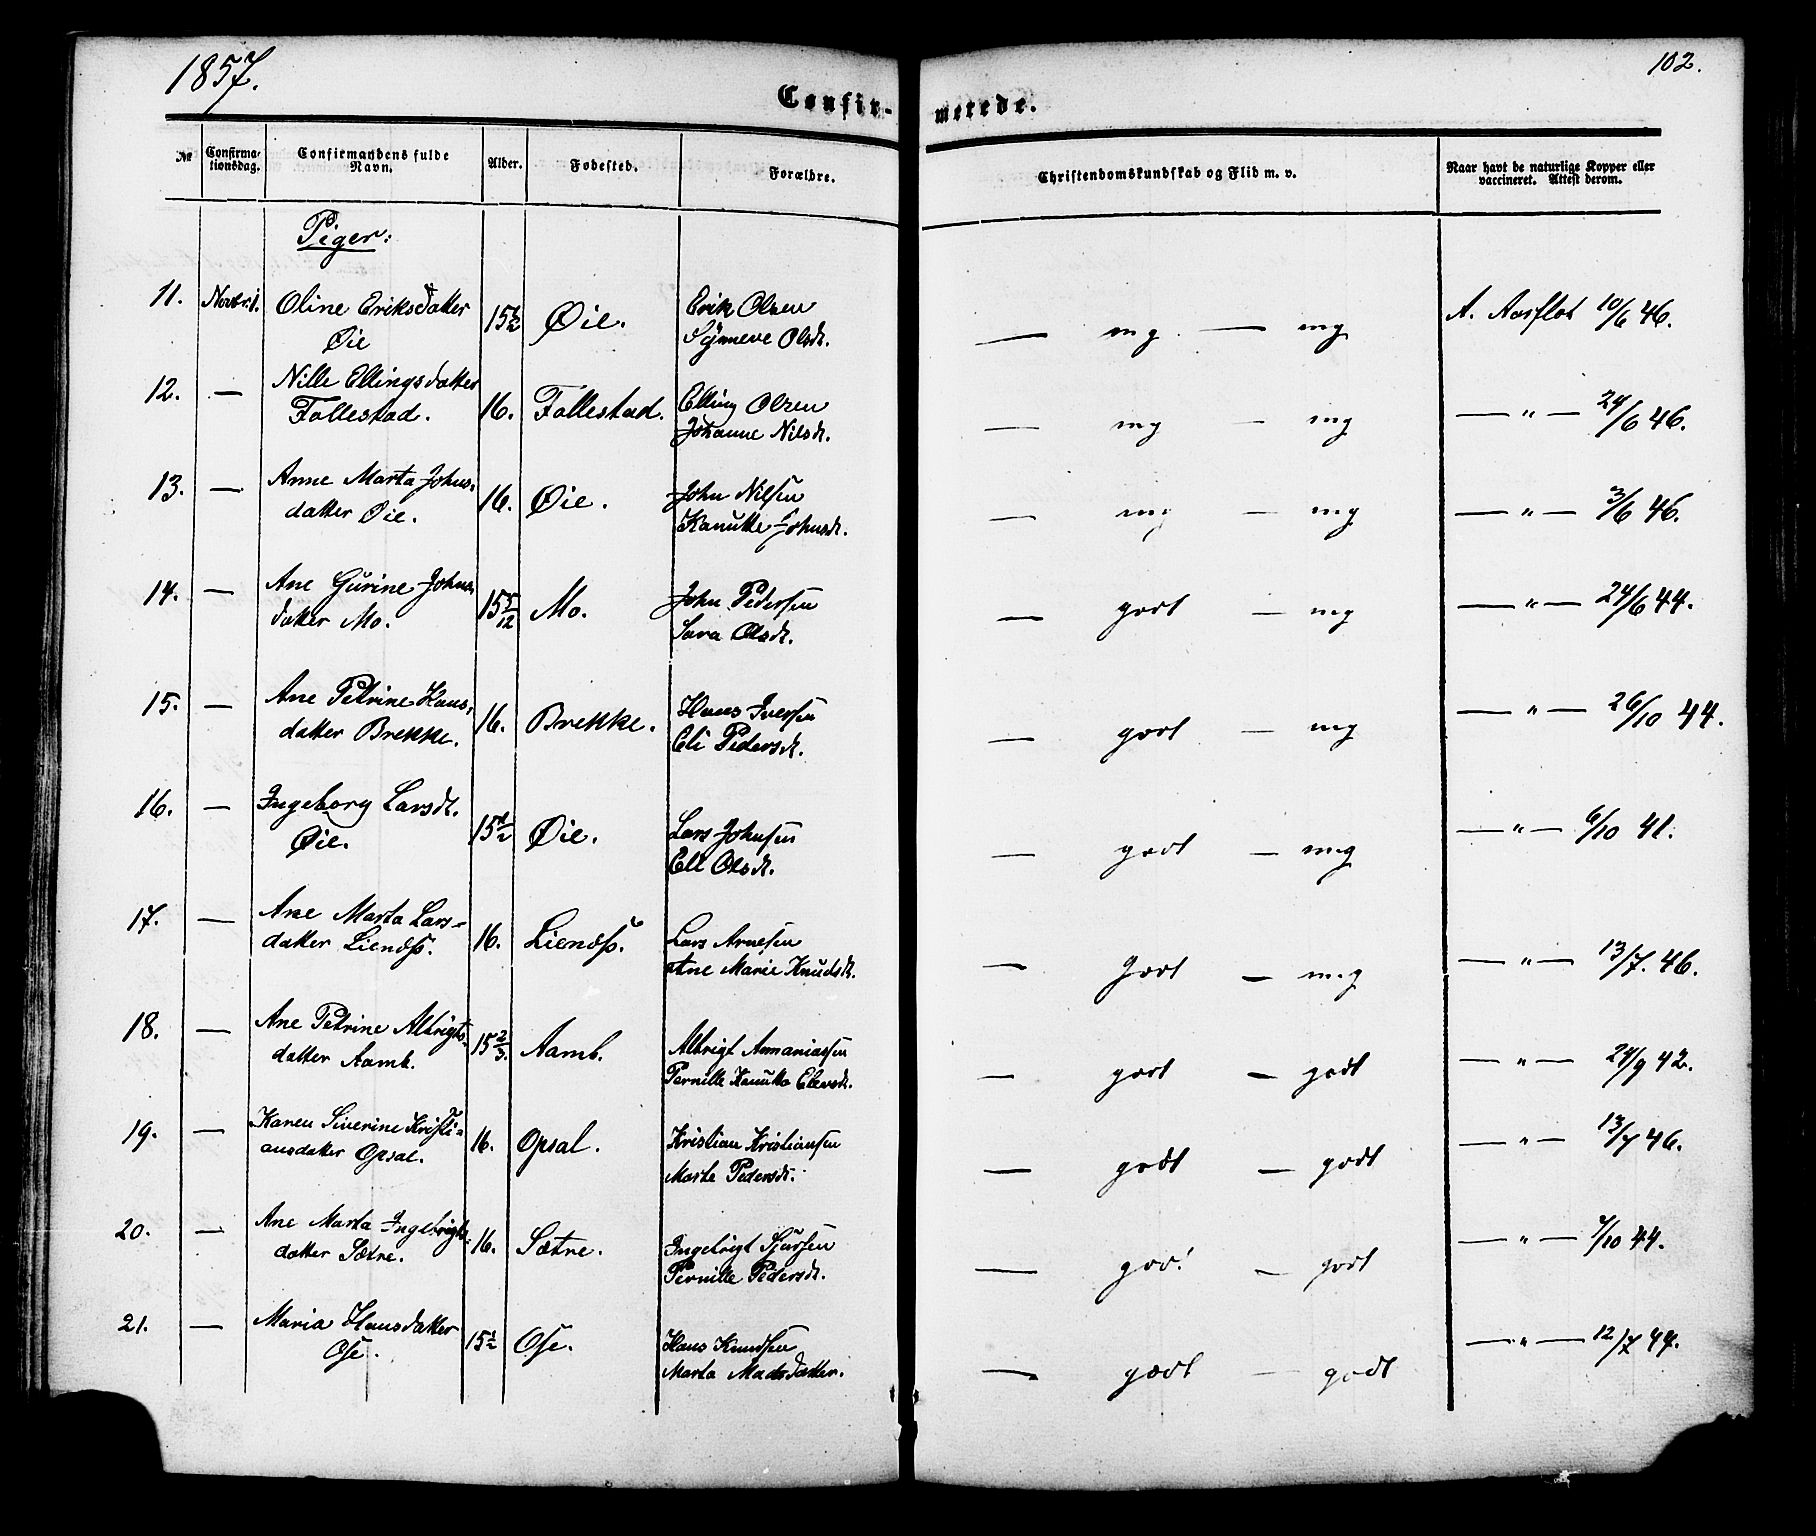 1857.
102.
Confir-
merede.
№
Confirma-
tionsdag.
Confirmandens fulde
Navn.
Alder.
Fødested.
Forældre.
Christendomskundskab og Flid m. v.
Naar havt de naturlige Kopper eller
vaccineret. Attest derom.
Piger:
11. Novbr. 1. Oline Eriksdatter
Øie
15 1/2 Øie.
Erik Olsen
Synneve Olsdt.
— mg — mg
A. Aarflot 10/6 46.
12. — Nille Ellingsdatter
Follestad.
16. Follestad.
Elling Olsen
Johanne Nilsdt.
— mg — mg
— " — 24/6 46.
13. — Anne Marta Johns-
datter Øie.
16. Øie.
John Nilsen
Kanutte Johnsdt.
— mg — mg
— " — 3/6 46.
14. — Ane Gurine Johns-
datter Mo.
15 5/12 Mo.
John Pedersen
Sara Olsdt.
— godt — mg
— " — 24/6 44.
15. — Ane Petrine Hans-
datter Brekke.
16. Brekke.
Hans Iversen
Eli Pedersdt.
— godt — mg
— " — 26/10 44.
16. — Ingeborg Larsdt.
Øie.
15 1/2 Øie.
Lars Johnsen
Eli Olsdt.
— godt — mg
— " — 6/10 41.
17. — Ane Marta Lars-
datter Liendss.
16. Liendss.
Lars Arnesen
Ane Marie Knudsdt.
— Godt — mg
— " — 13/7. 46.
18. — Ane Petrine Albrigts-
datter Aamb.
15 2/3. Aamb.
Albrigt Annaniassen
Pernille Kanutta Elensdt.
— godt — godt
— " — 24/9 42.
19. — Karen Siverine Kristi-
ansdatter Opsal.
16. Opsal.
Kristian Kristiansen
Marte Pedersdt.
— godt — godt
— " — 13/7 46.
20. — Ane Marta Ingebrigts-
datter Sætre.
16. Sætre.
Ingebrigt Sjursen
Pernille Pedersdt.
— god! — godt
— " — 7/10 44.
21. — Maria Hansdatter
Ose.
15 1/2 Ose.
Hans Knudsen
Marta Madsdatter.
— godt — godt
— " — 12/7 44.